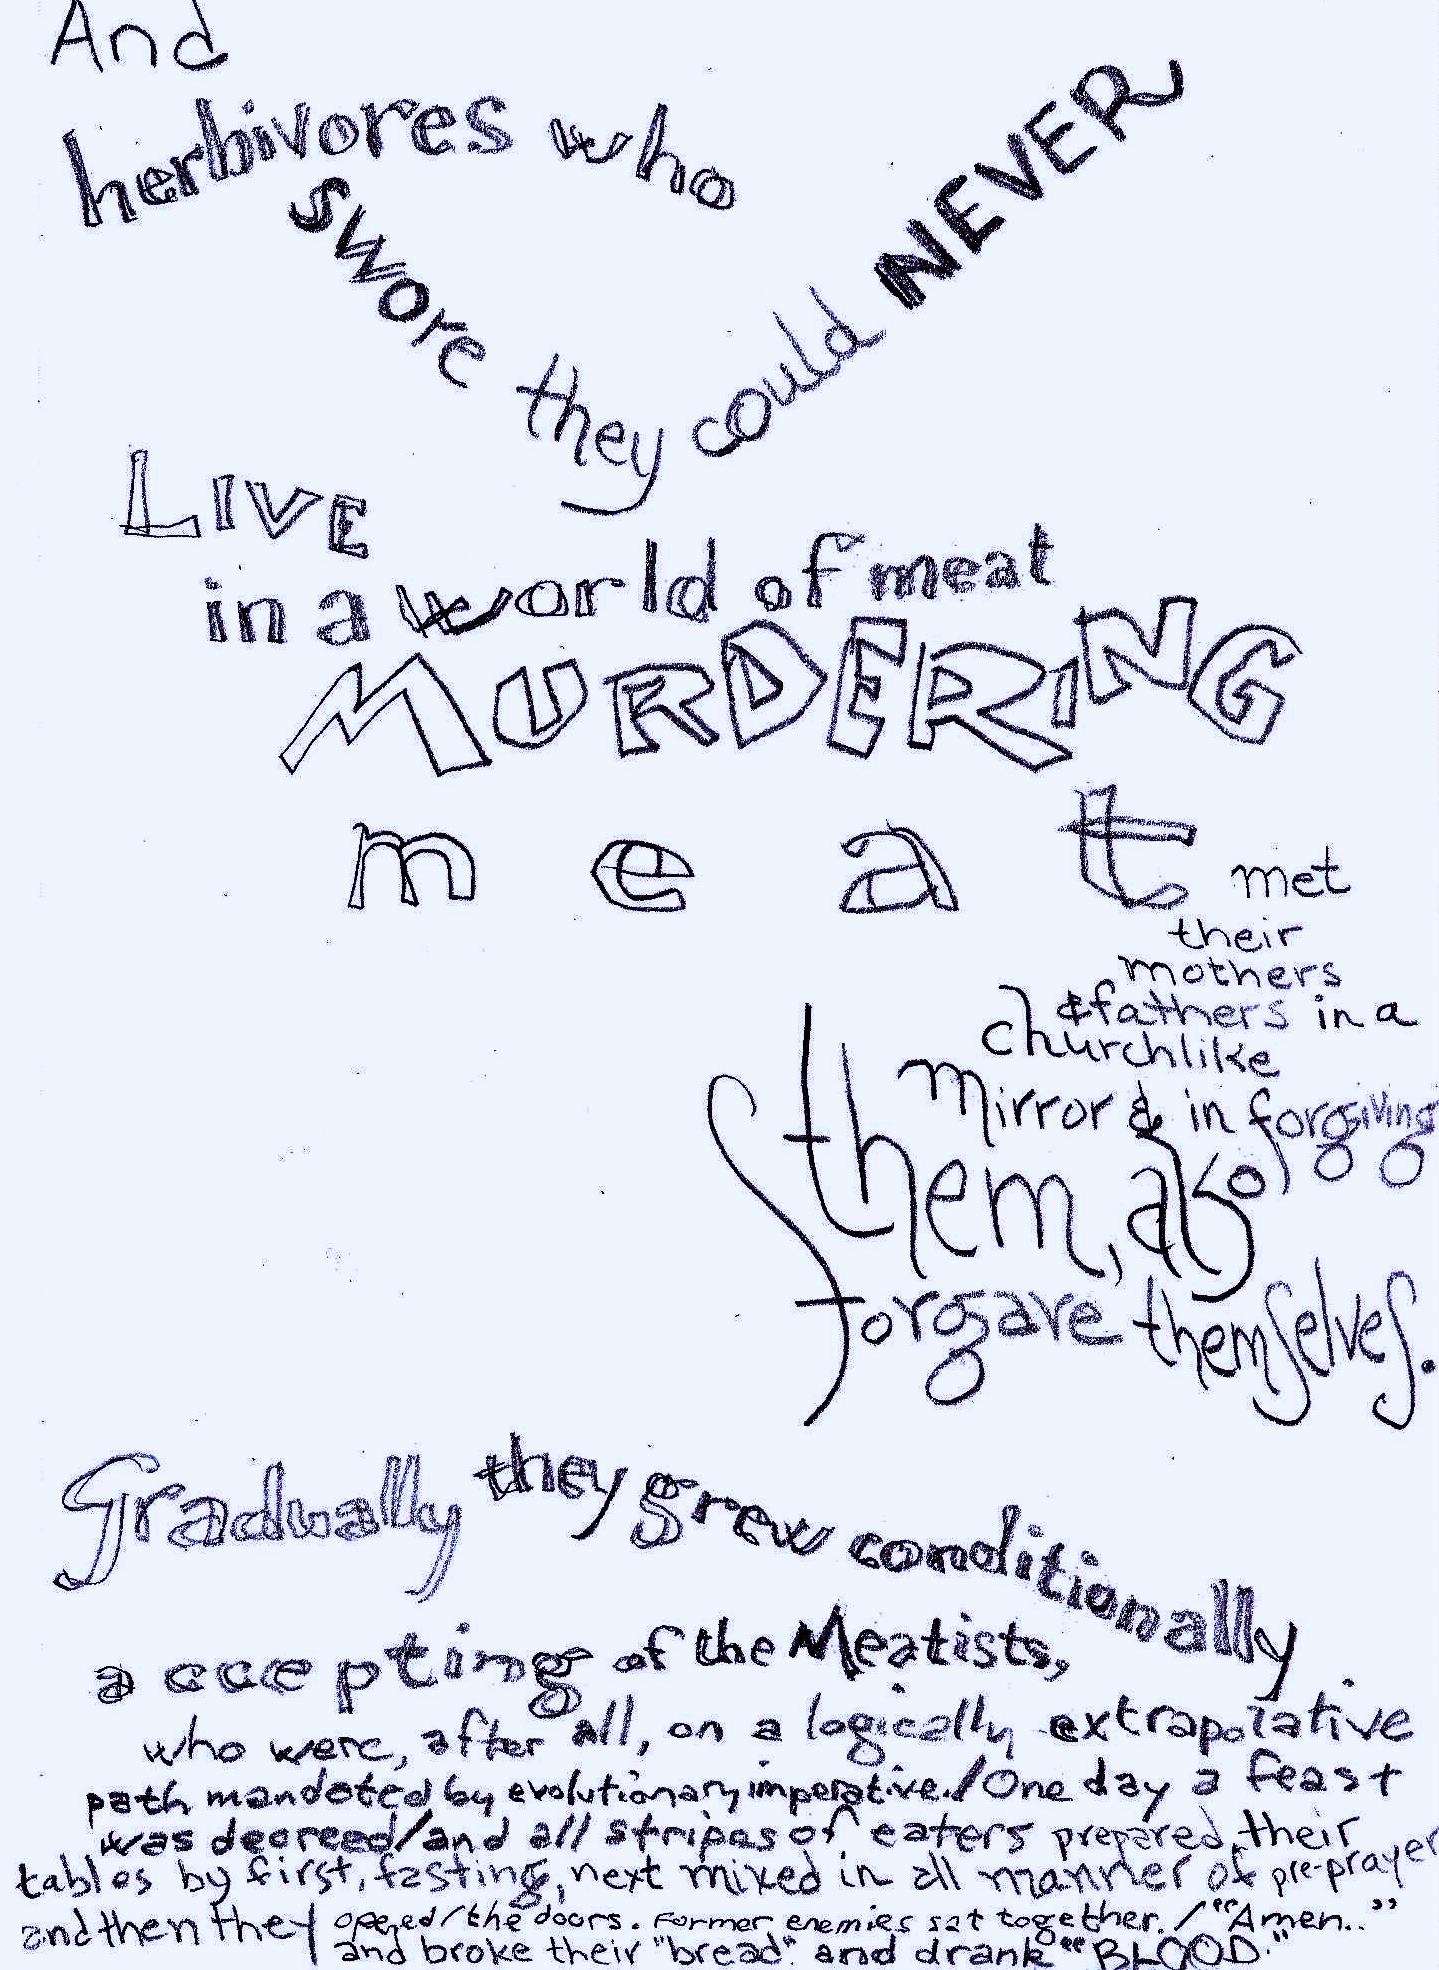 And
herbivores who
swore they could NEVER
LIVE
in a world of meat
MURDERING
meat met
their
mothers
&fathers in a
churchlike
mirror & in forgiving
them, also
forgave themselves.
Gradually they grew conditionally
accepting of the Meatists,
who were, after all, on a logically extrapolative
path mandated by evolutionary imperative./One day a feast
was decreed/and all stripes of eaters prepared their
tables by first, fasting, next mixed in all manner of pre-prayer
and then they opened/the doors. Former enemies sat together./"Amen.."
and broke their "bread" and drank "BLOOD."